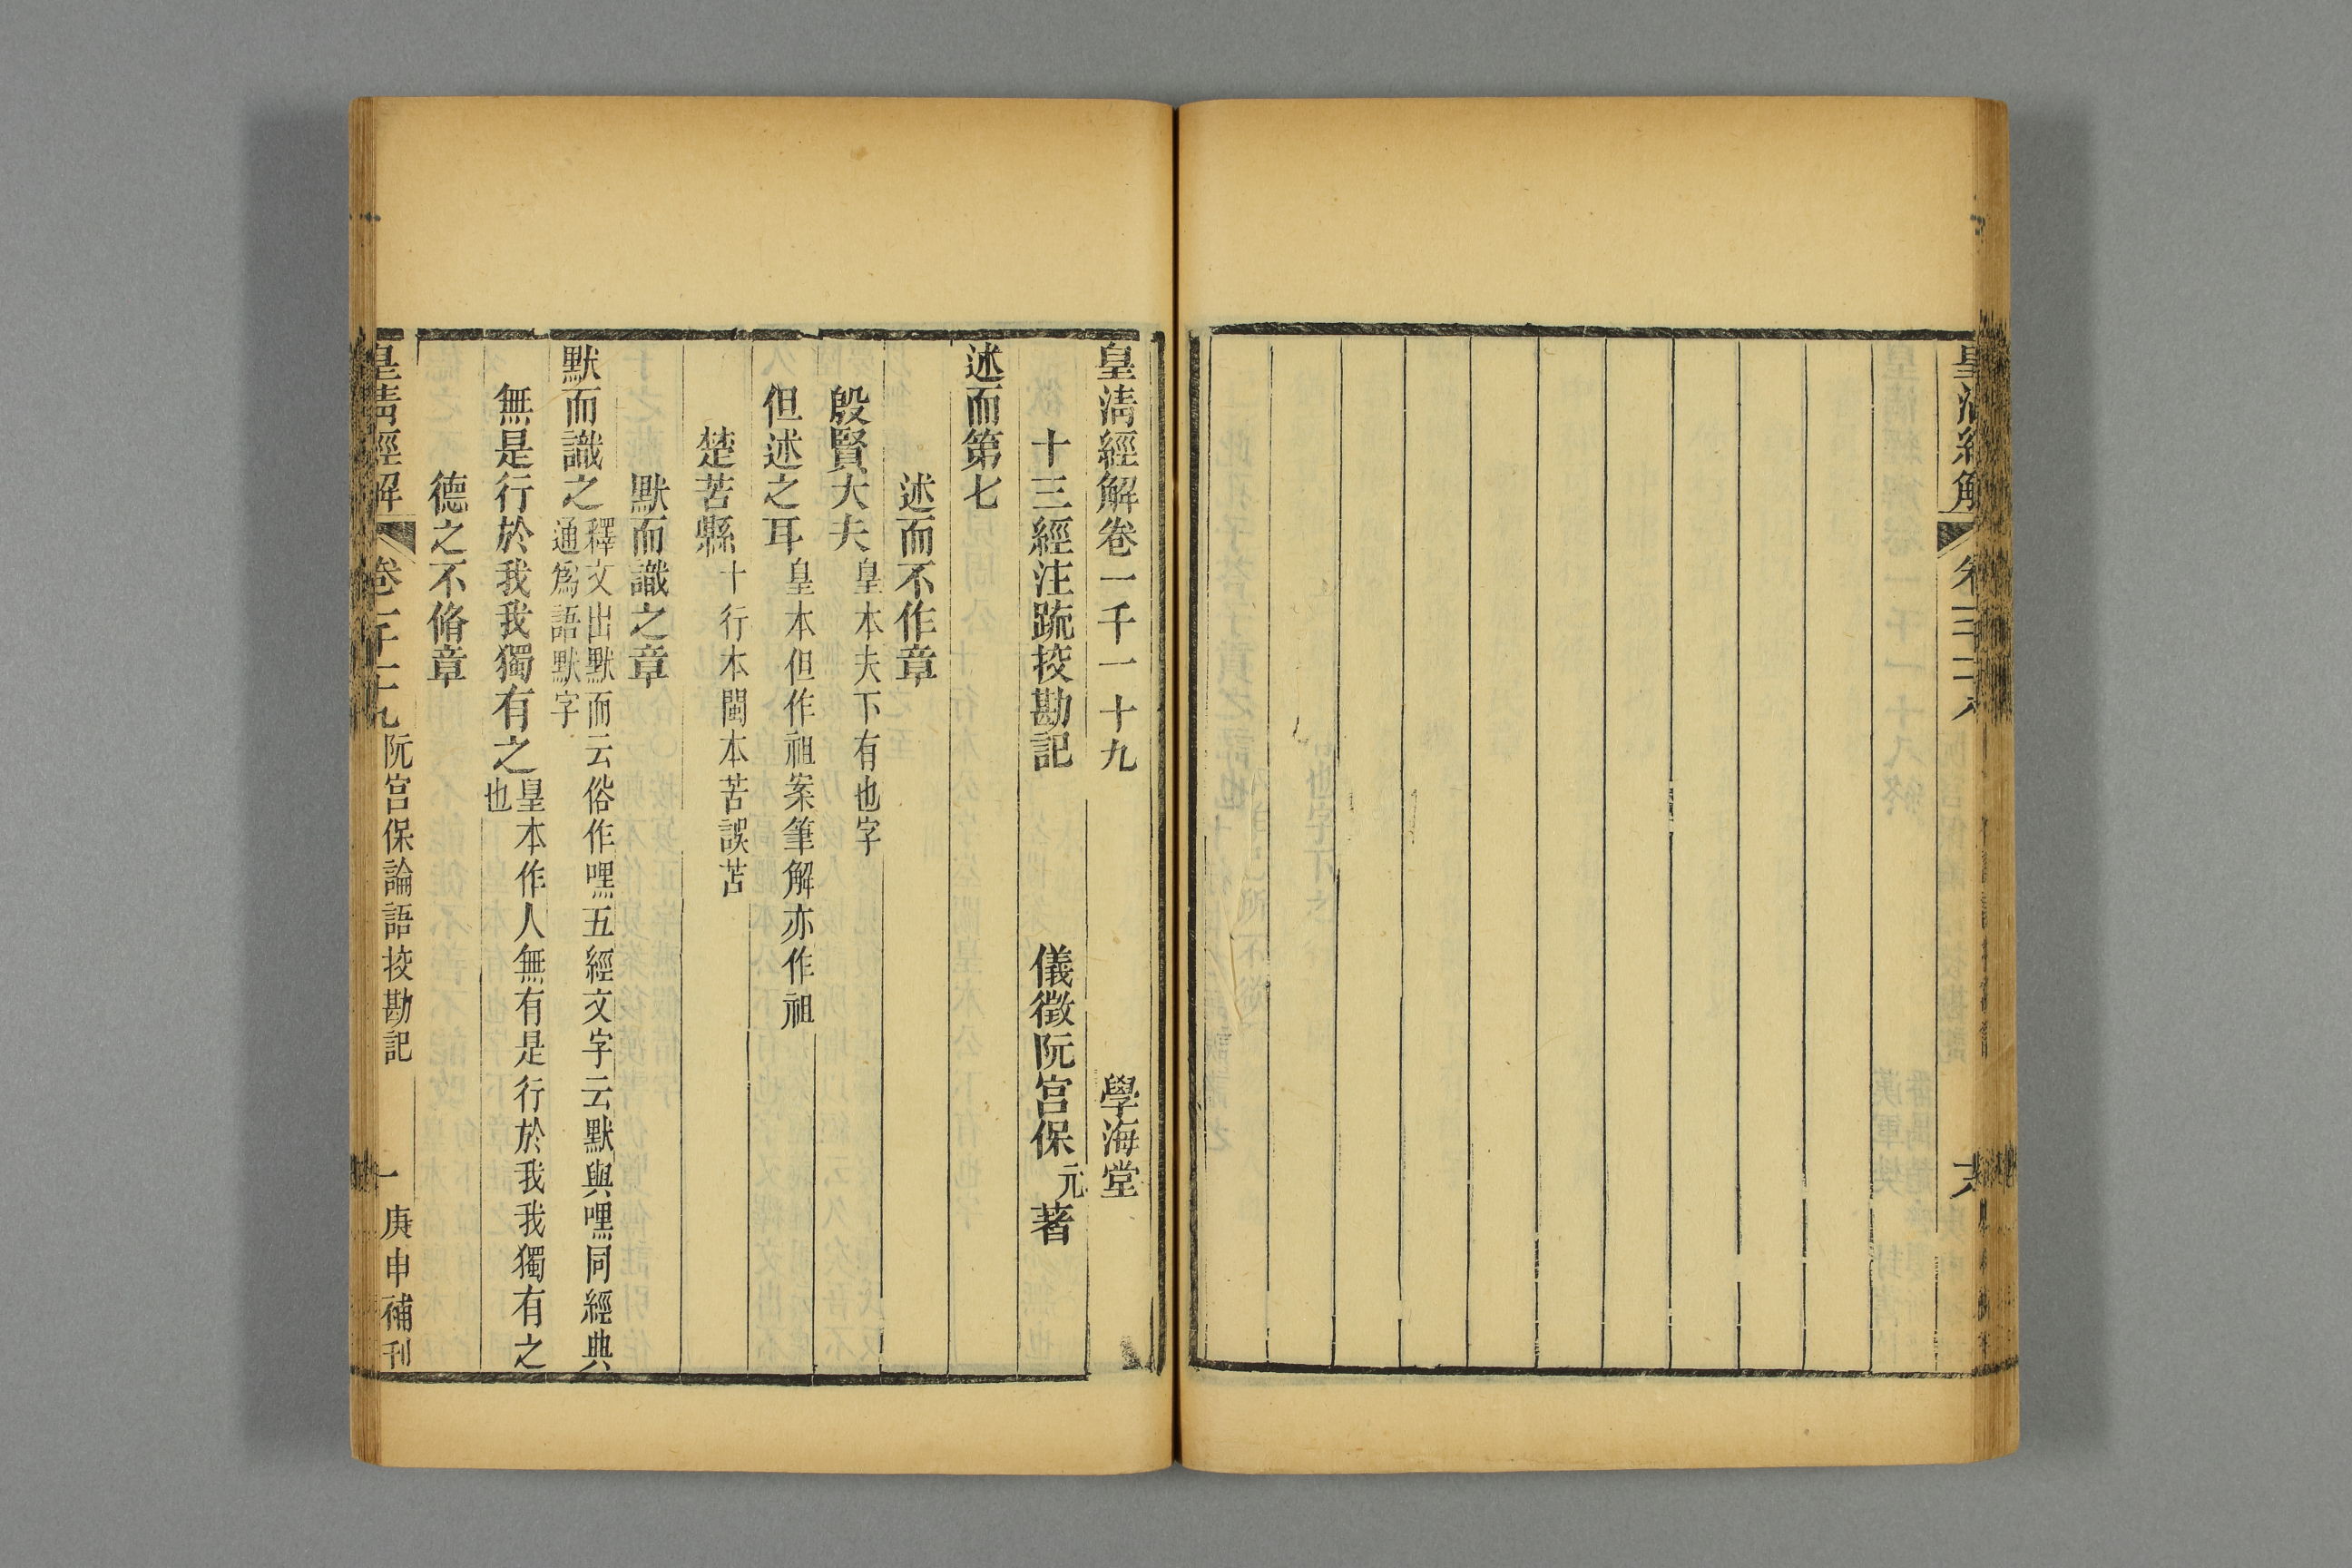 皇清經解卷一千一十九 學海堂
十三經注疏挍勘記 儀徵阮宮保元著
述而第七
述而不作章
殷賢大夫皇本夫下有也字
但述之耳皇本但作祖案筆解亦作祖
楚苦縣十行本閩本苦誤苫
默而識之章
默而識之釋文出默而云俗作嘿五經文字云默與嘿同經典
通爲語默字
無是行於我我獨有之皇本作人無有是行於我我獨有之
也
德之不脩章
皇清經解 卷一千一十九 阮宮保論語挍勘記 一 庚申補刊